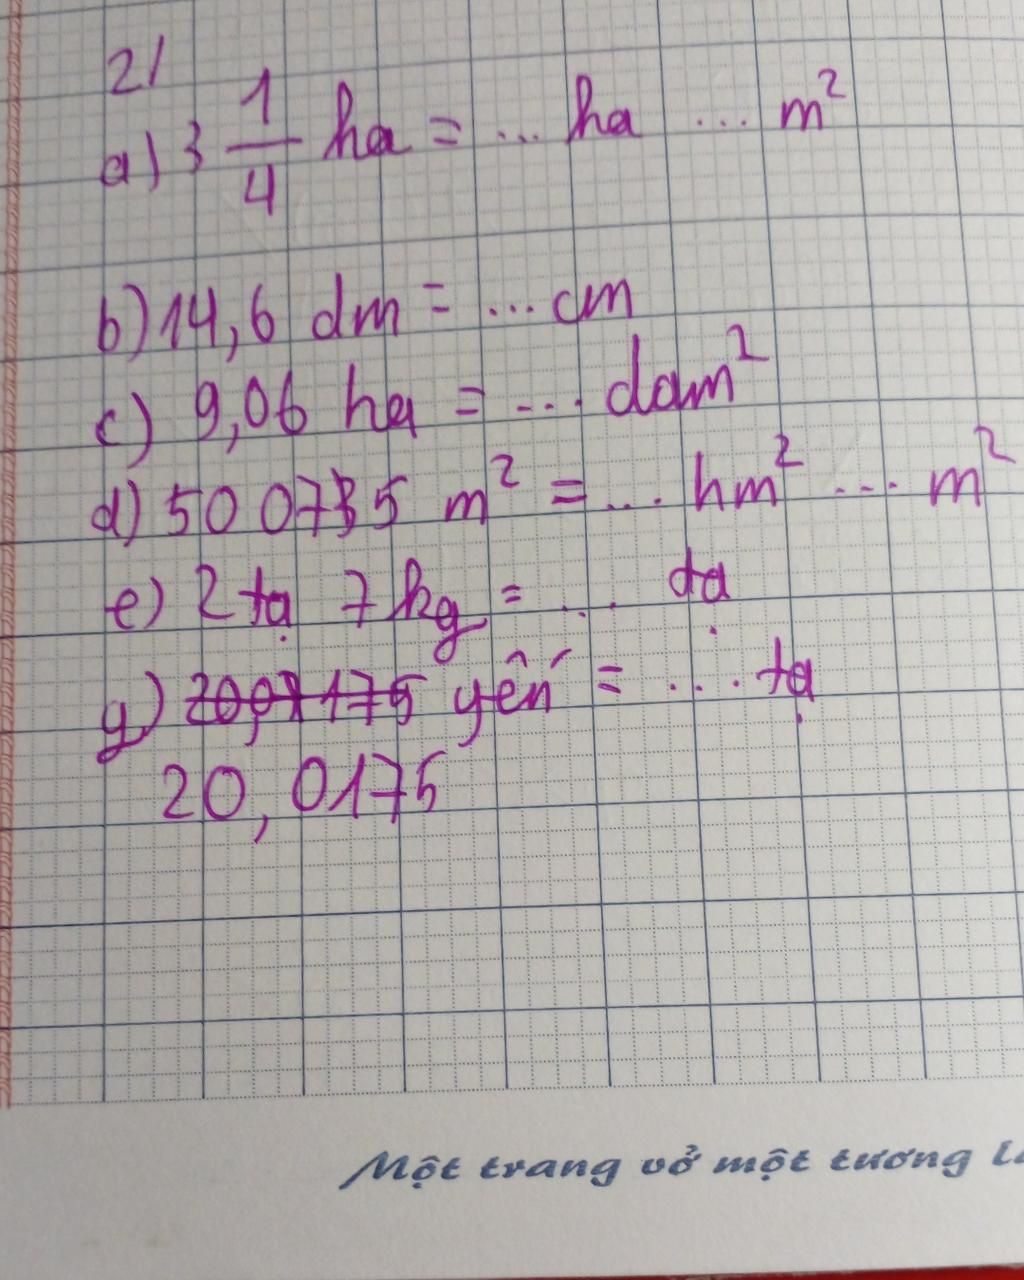 2/
a) 3 1/4 ha = ... ha ... m²
b) 14,6 dm = ... cm
c) 9,06 ha = ... dam²
d) 500735 m² = ... hm² ... m²
e) 2 tạ 7 kg = ... tạ
g) yến = ... tạ
20,0175
Một trang vở một tương